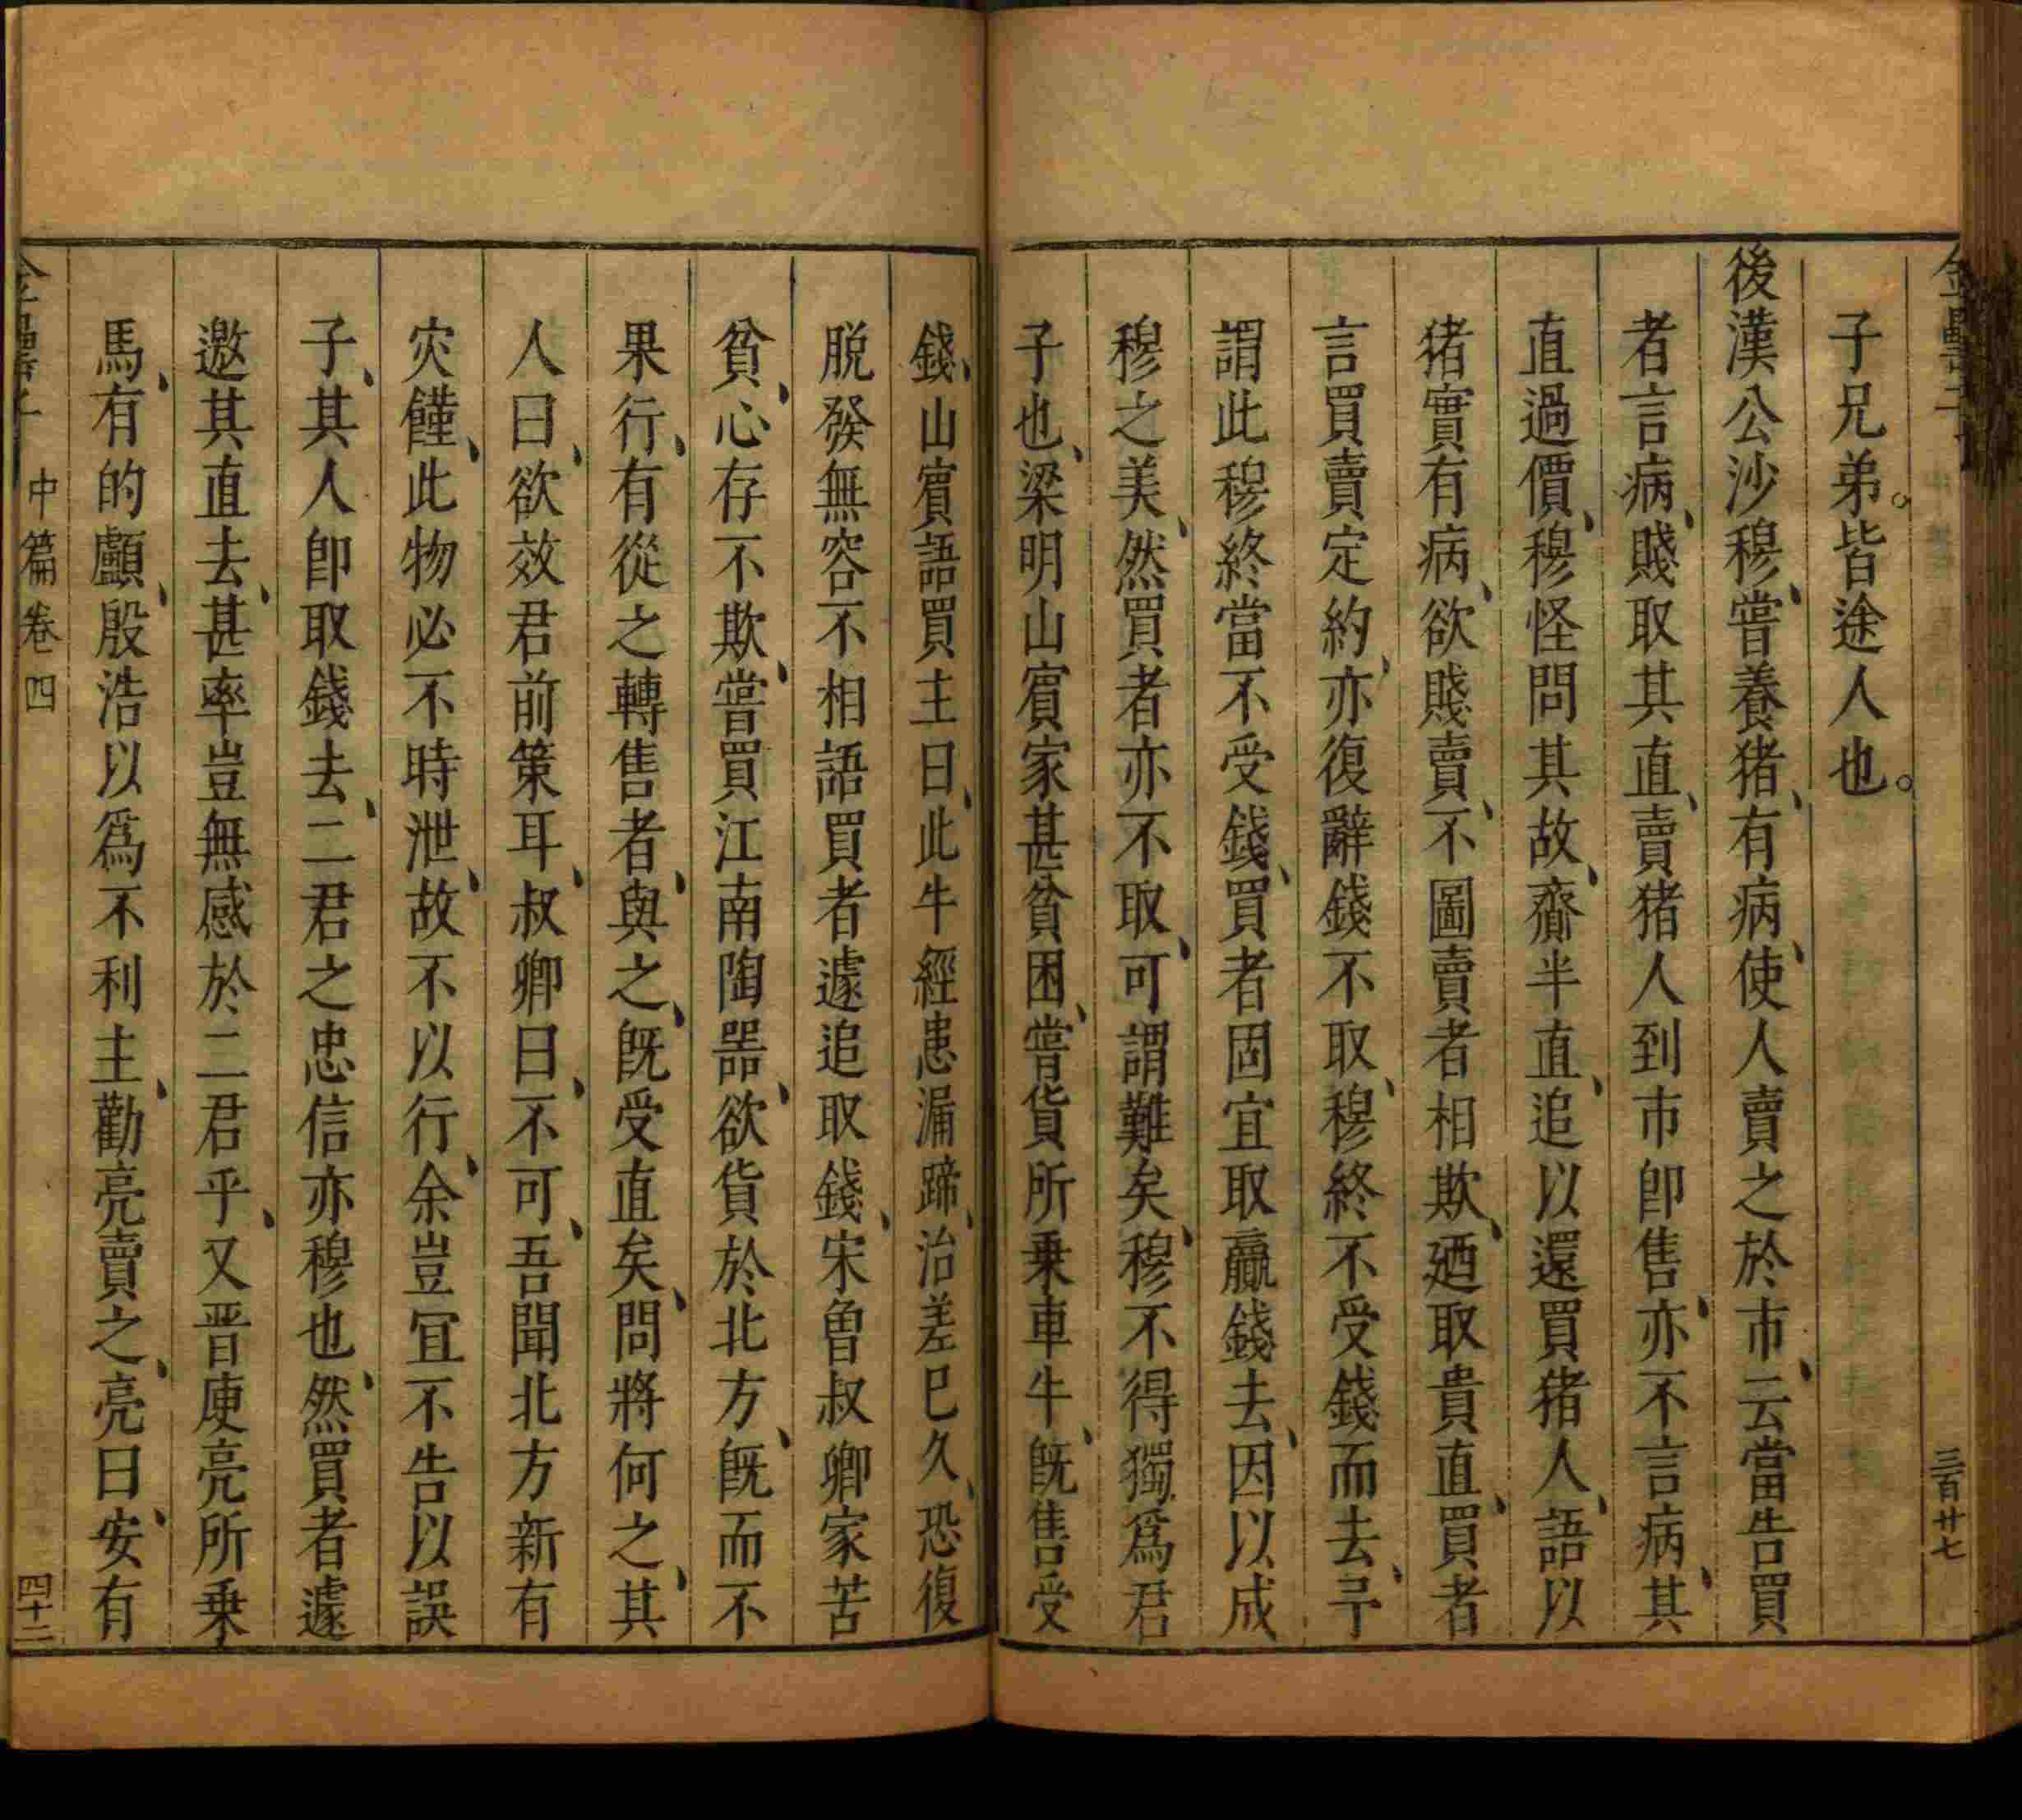 三百廿七
子兄弟。皆途人也。
後漢公沙穆、嘗養猪、有病、使人賣之於市、云當告買
者言病、賤取其直、賣猪人到市即售、亦不言病、其
直過價、穆怪問其故、齎半直、追以還買猪人、語以
猪實有病、欲賤賣、不圖賣者相欺、廼取貴直、買者
言買賣定約、亦復辭錢不取、穆終不受錢而去、予
謂此穆終當不受錢、買者固宜取贏錢去、因以成
穆之美、然買者亦不取、可謂難矣、穆不得獨爲君
子也、梁明山賔家甚貧困、嘗貨所乗車牛、旣售受
錢、山賔語買主曰、此牛經患漏蹄、治差巳久、恐復
脱發無容不相語買者遽追取錢、宋魯叔卿家苦
貧、心存不欺、嘗買江南陶噐、欲貨於北方、旣而不
果行、有從之轉售者、與之、旣受直矣、問將何之、其
人曰、欲效君前策耳、叔卿曰、不可、吾聞北方新有
灾饉、此物必不時泄、故不以行、余豈宜不告以誤
子、其人即取錢去、二君之忠信亦穆也、然買者遽
邀其直去、甚率豈無感於二君乎、又晋庾亮所乗
馬、有的顱、殷浩以爲不利主、勸亮賣之、亮曰、安有
中篇卷四
四十二